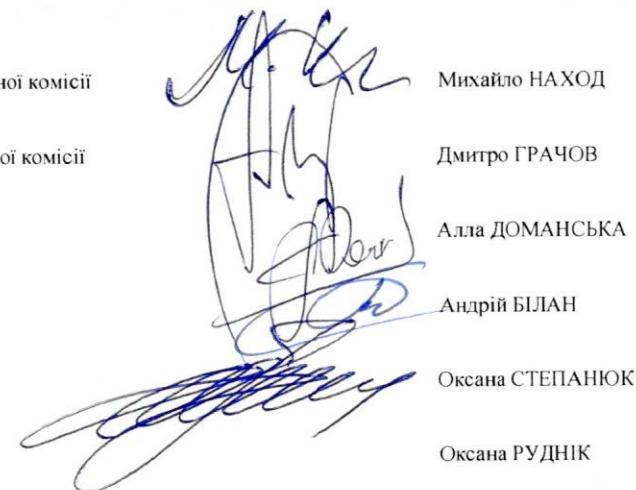 ної комісії Михайло НАХОД
ої комісії Дмитро ГРАЧОВ
Алла ДОМАНСЬКА
Андрій БІЛАН
Оксана СТЕПАНЮК
Оксана РУДНІК